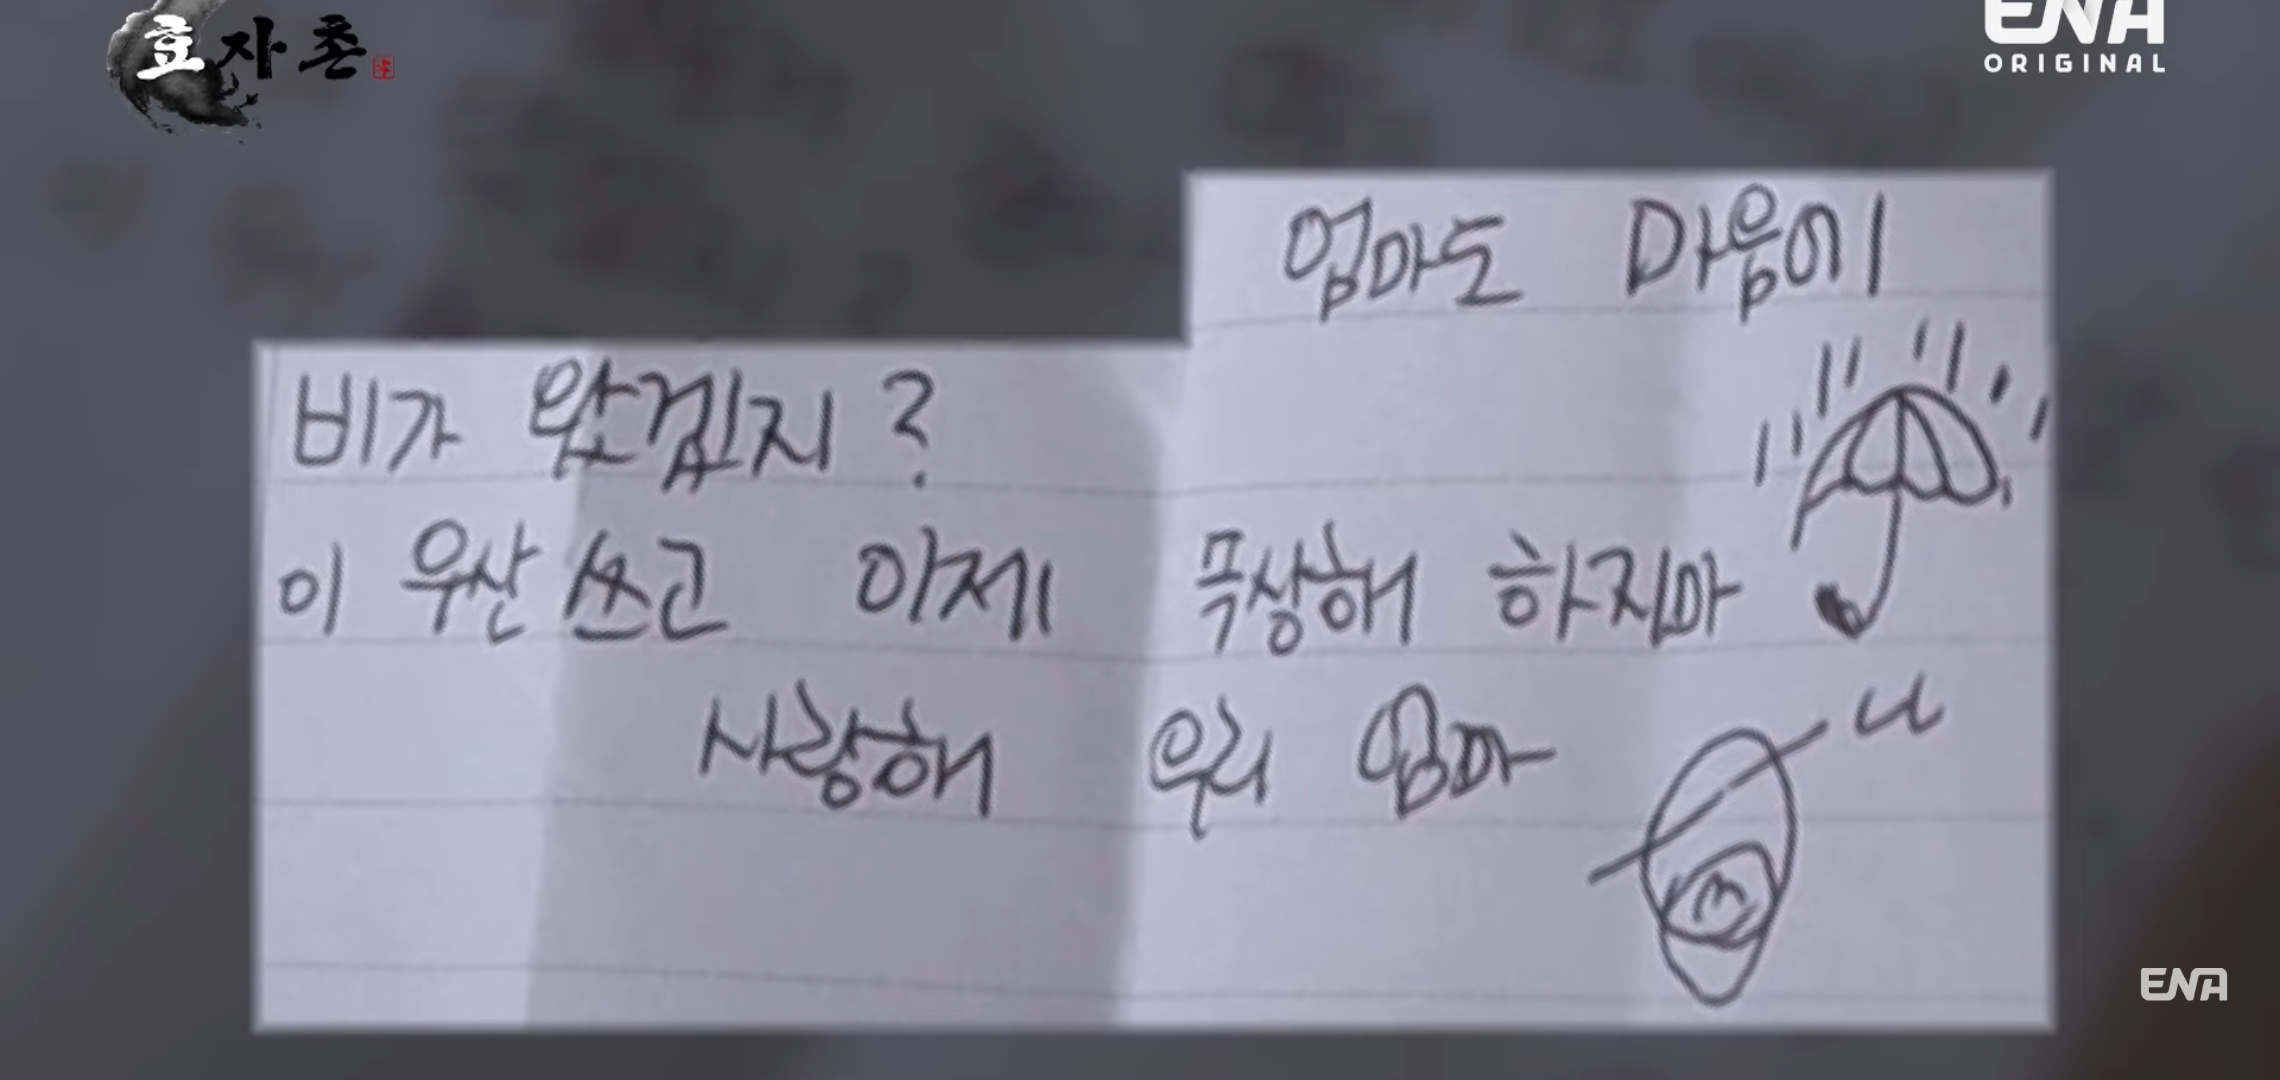 효자촌
ENA
ORIGINAL
엄마도 마음이
비가 왔겠지?
이 우산 쓰고 이제 속상해 하지마
사랑해 우리 엄마
ENA